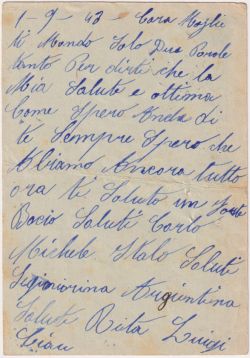 1-9-43 Cara Moglie
ti Mando Solo Due Parole
tanto Per dirti che la
Mia Salute e ottima
Come Spero Anche di
te Sempre Spero che
Abiamo Ancora tutto
ora ti Saluto un forte
Bacio Saluti Carlo
Michele Italo Saluti
Argientina
Salute Rita Luigi